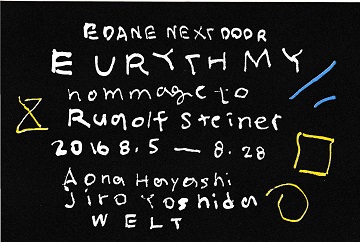 EDANE NEXT DOOR
EURYTHMY
hommage to
Rudolf Steiner
2016 8.5 — 8.28
Aona Hayashi
jiro Yoshida
WELT